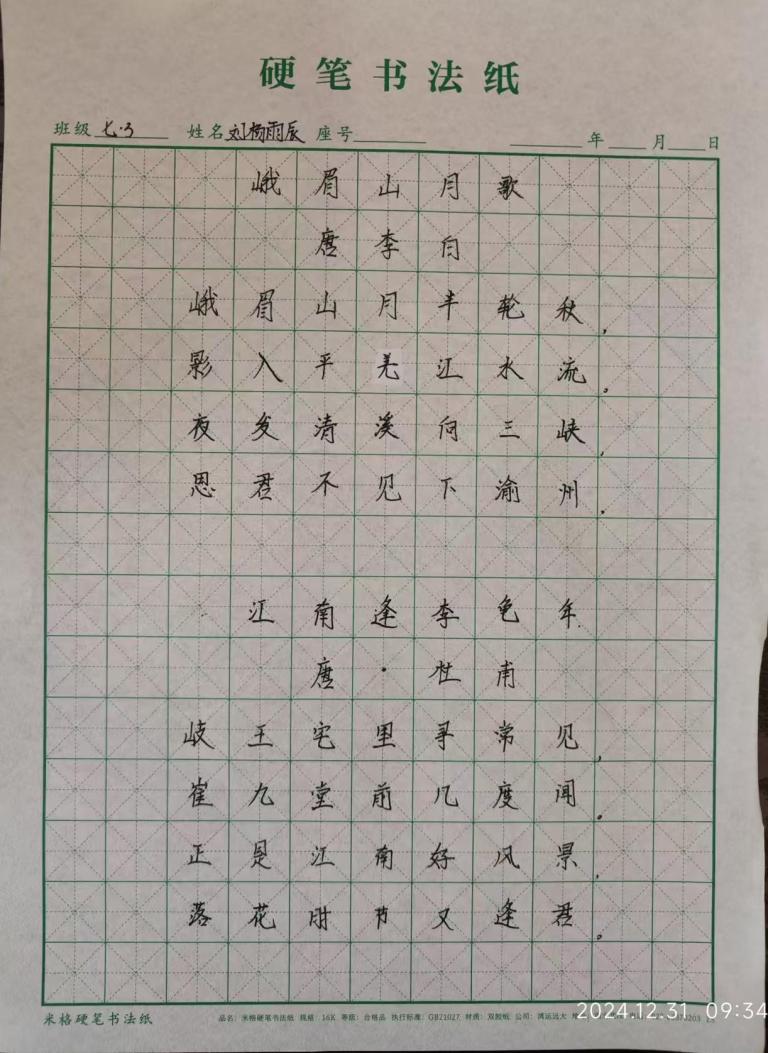 硬笔书法纸
班级 七.3 姓名 刘杨雨辰 座号 年 月 日
峨眉山月歌
唐李白
峨眉山月半轮秋，
影入平羌江水流。
夜发清溪向三峡，
思君不见下渝州。
江南逢李龟年
唐·杜甫
岐王宅里寻常见，
崔九堂前几度闻。
正是江南好风景，
落花时节又逢君。
米格硬笔书法纸 品名：米格硬笔书法纸 规格：16K 等级：合格品 执行标准：GB21027 材质：双胶纸 公司：鸿运远大
2024.12.31 09:34